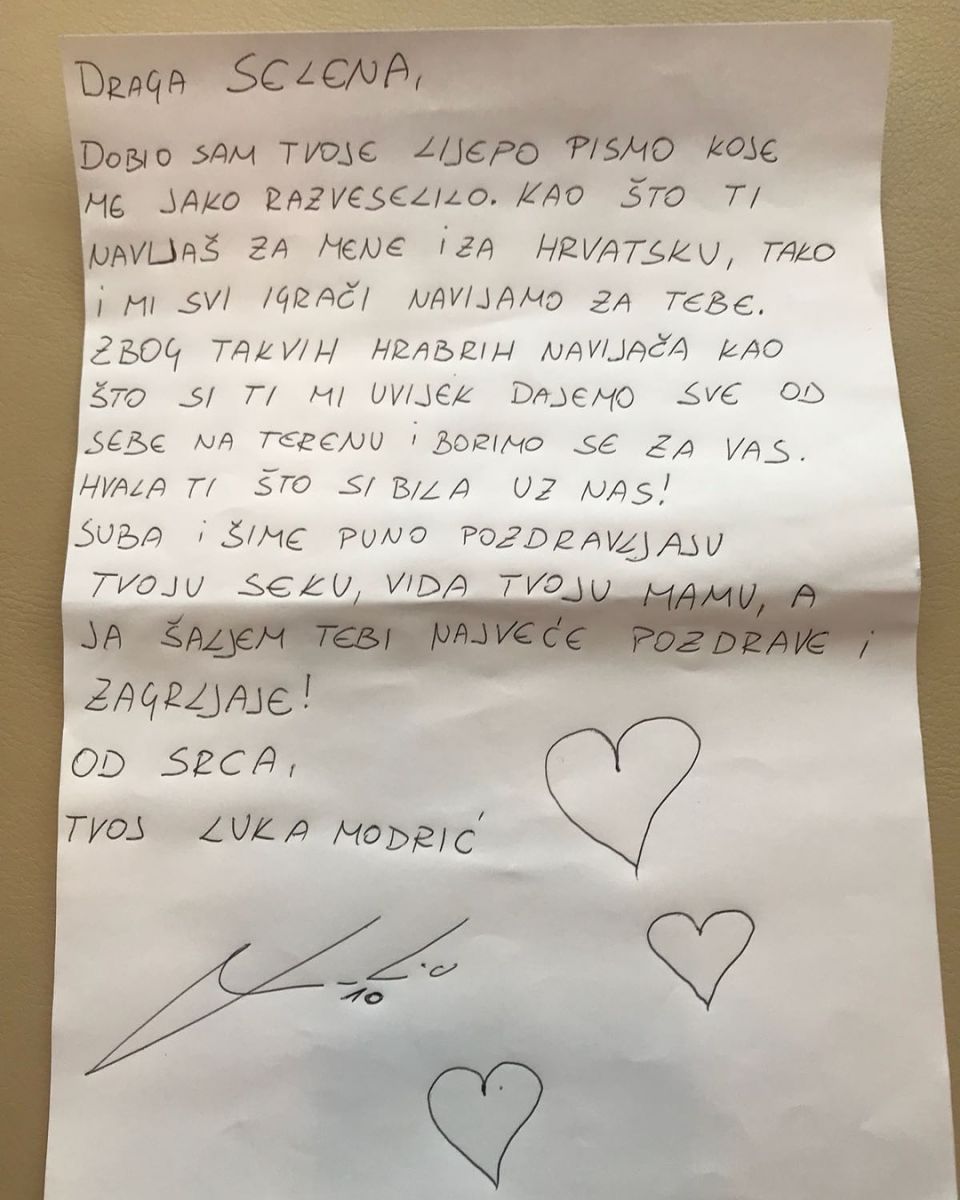 DRAGA SELENA,
DOBIO SAM TVOJE LIJEPO PISMO KOJE
ME JAKO RAZVESELILO. KAO ŠTO TI
NAVIJAŠ ZA MENE i ZA HRVATSKU, TAKO
i MI SVI IGRAČI NAVIJAMO ZA TEBE.
ZBOG TAKVIH HRABRIH NAVIJAČA KAO
ŠTO SI TI MI UVIJEK DAJEMO SVE OD
SEBE NA TERENU i BORIMO SE ZA VAS.
HVALA TI ŠTO SI BILA UZ NAS!
SUBA i ŠIME PUNO POZDRAVLJAJU
TVOJU SEKU, VIDA TVOJU MAMU, A
JA ŠALJEM TEBI NAJVEĆE POZDRAVE i
ZAGRLJAJE!
OD SRCA,
TVOJ LUKA MODRIĆ
10